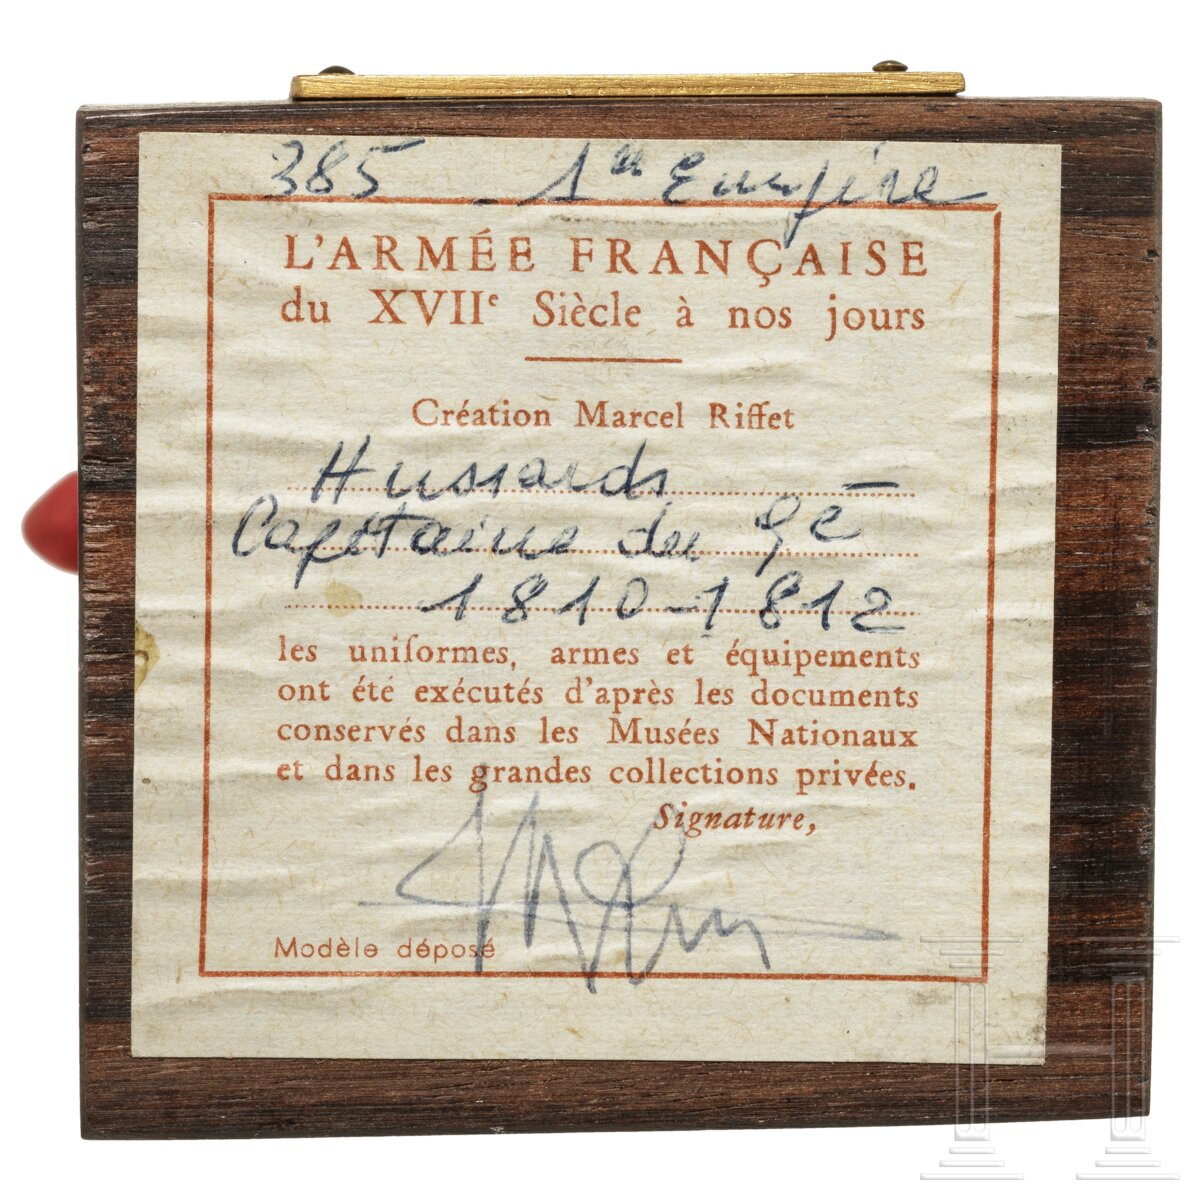 385 - 1er Empire
L'ARMÉE FRANÇAISE
du XVIIe Siècle à nos jours
Création Marcel Riffet
Hussards
Capitaine du 9e
1810-1812
les uniformes, armes et équipements
ont été exécutés d'après les documents
conservés dans les Musées Nationaux
et dans les grandes collections privées.
Signature,
Modèle déposé